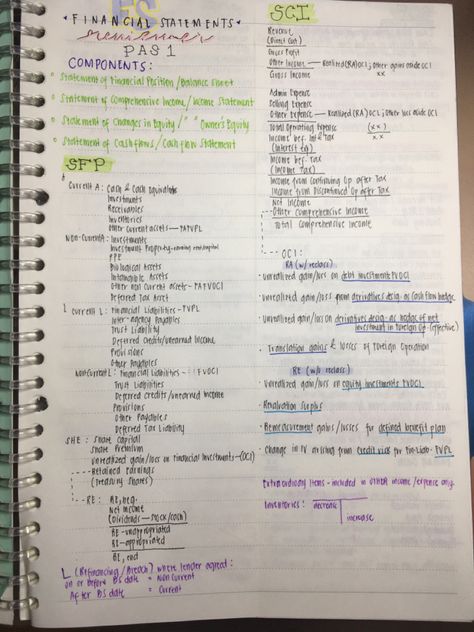 FS
• FINANCIAL STATEMENTS •
reviewer
PAS 1
COMPONENTS:
◦ Statement of Financial Position / Balance Sheet
◦ Statement of Comprehensive Income / Income Statement
◦ Statement of Changes in Equity / " " Owner's Equity
◦ Statement of Cashflows / Cash flow Statement
SFP
A
Current A: Cash & Cash Equivalents
Investments
Receivables
Inventories
Other current assets —
Non-Current A: Investments
Investment Property
PPE
Biological Assets
Intangible Assets
Other non current assets —
Deferred Tax Asset
L Current L: Financial Liabilities - FVPL
Inter-agency Payables
Trust Liability
Deferred Credits/Unearned Income
Provisions
Other Payables
Noncurrent L: Financial Liabilities - FVOCI
Trust Liabilities
Deferred credits/unearned income
Provisions
Other Payables
Deferred Tax Liability
SHE: Share Capital
Share Premium
Unrealized gain/loss on Financial Investments — (OCI)
Retained Earnings
(Treasury Shares)
RE: RE, beg.
Net Income
(Dividends — stock/cash)
RE - unappropriated
RE - appropriated
RE, end
L (Refinancing/Breach) where lender agreed:
on or before BS date = Non Current
After BS date = Current
SCI
Revenue
(Direct Cost)
Gross Profit
Other Income — Realized (RA) OCI; other gains aside OCI
Gross Income xx
Admin Expense
Selling Expense
Other Expense — Realized (RA) OCI; other loss aside OCI
Total Operating Expense (xx)
Income bef. Int & Tax xx
(Interest Exp)
Income bef. Tax
(Income Tax)
Income from Continuing Op after Tax
Income from Discontinued Op after Tax
Net Income
Other Comprehensive Income
Total Comprehensive Income
OCI:
RA (w/ reclass)
• Unrealized gain/loss on debt investments FVOCI
• Unrealized gain/loss from derivatives desig. as cash flow hedge
• Unrealized gain/loss on derivatives desig. as hedges of net
investment in foreign Op (effective)
• Translation gains & losses of Foreign Operation
RE (w/o reclass)
• Unrealized gain/loss on equity investments FVOCI
• Revaluation Surplus
• Remeasurement gains/losses for defined benefit plan
• Change in FV arising from credit risk for fin. liab - FVPL
Extraordinary Items - included in OTHER income/expense only
Inventories: decrease
increase